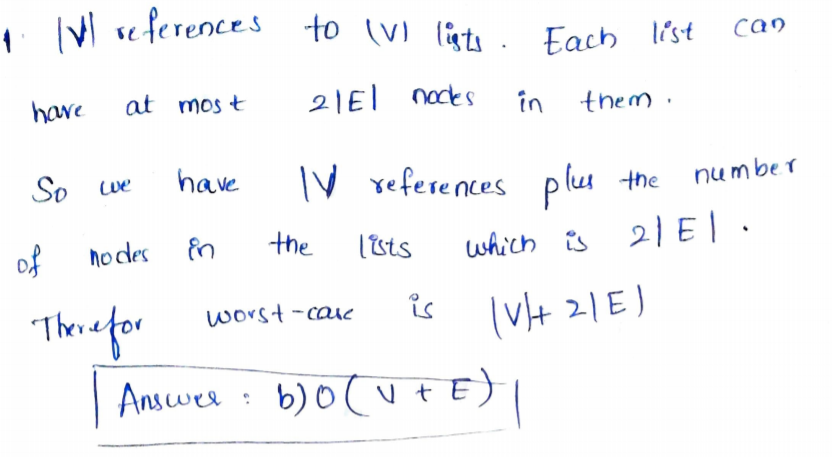 1. |V| references to |V| lists. Each list can
have at most 2|E| nodes in them.
So we have |V references plus the number
of nodes in the lists which is 2|E|.
Therefor worst-case is |V|+ 2|E|
Answer : b) O(V + E)